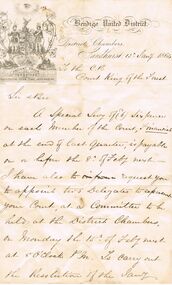 Bendigo United District.
District Chambers,
Sandhurst 15th Jany 1864
To the C.R.
Court King of the Forest
Sir & Bro
A Special Levy of 6d Sixpence
on each Member of the Court,
at the end of last Quarter, is payable
on or before the 8th of Feby next—
I have also to request you
to appoint two Delegates to represent
your Court at a Committee to be
held at the District Chambers,
on Monday the 15th of Feby next
at 8 O'Clock P.M. To carry out
the Resolution of the Jany